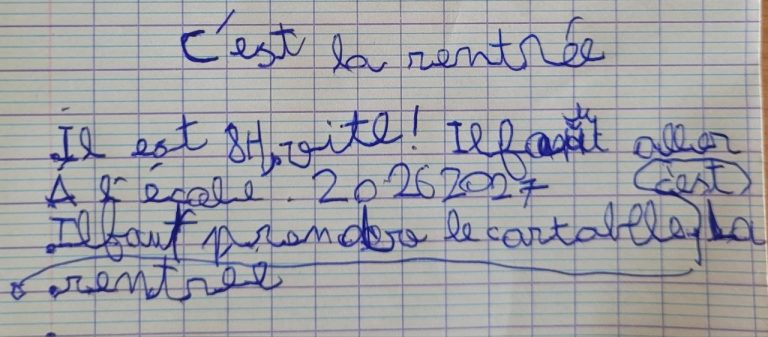 C'est la rentrée
Il est 8H, vite! Il faut aller
À l'école. 20262027 (c'est)
Il faut prendre le cartable, La
rentrée